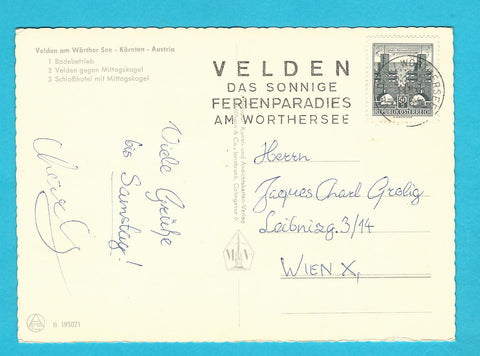 Velden am Wörther See - Kärnten - Austria
1 Badebetrieb
2 Velden gegen Mittagskogel
3 Schloßhotel mit Mittagskogel
VELDEN
DAS SONNIGE
FERIENPARADIES
AM WÖRTHERSEE
REPUBLIK ÖSTERREICH
Viele Grüße
bis Samstag!
Herrn
Jaques Charl Grolig
Leibnizg. 3/14
WIEN X,
Kunst- und Ansichtskarten-Verlag
Innsbruck,
II 195021